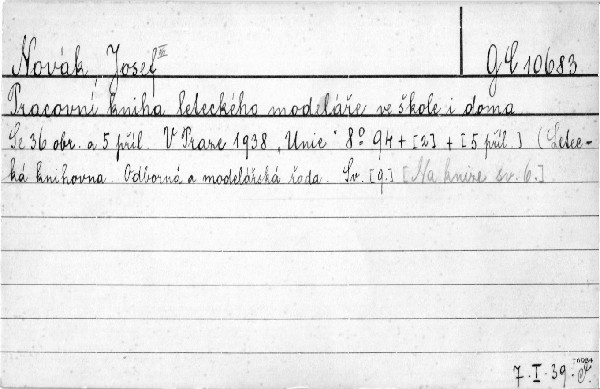 Novák, Josef III GC 10683
Pracovní kniha leteckého modeláře ve škole i doma
Se 36 obr. a 5 příl. V Praze 1938 "Unie" 8º 94 + [2] + [5 příl.] (Letec-
ká knihovna. Odborná a modelářská řada. Sv. [9.] [Na knize sv. 6.]
7.I.39.